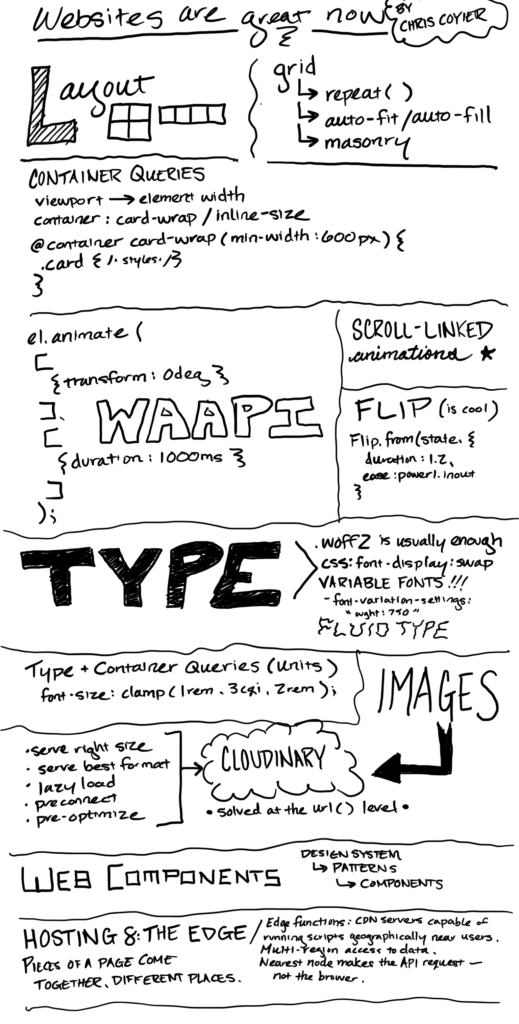 Websites are great now
BY
CHRIS COYIER
Layout
grid
↳ repeat( )
↳ auto-fit/auto-fill
↳ masonry
CONTAINER QUERIES
viewport → element width
container: card-wrap / inline-size
@container card-wrap (min-width: 600px) {
.card { /. styles. /}
}
el.animate (
[
{transform: 0deg }
],
[
{duration: 1000ms }
]
);
WAAPI
SCROLL-LINKED
animationd ★
FLIP (is cool)
Flip.from(state, {
duration: 1.2,
ease: power1.inout
}
TYPE
.woff2 is usually enough
css: font-display: swap
VARIABLE FONTS!!!
- font-variation-settings:
"wght: 750"
FLUID TYPE
Type + Container Queries (units)
font-size: clamp(1rem, 3cqi, 2rem);
IMAGES
• serve right size
• serve best format
• lazy load
• preconnect
• pre-optimize
CLOUDINARY
• solved at the url() level •
WEB COMPONENTS
DESIGN SYSTEM
↳ PATTERNS
↳ COMPONENTS
HOSTING &: THE EDGE
PIECES OF A PAGE COME
TOGETHER, DIFFERENT PLACES.
Edge functions: CDN servers capable of
running scripts geographically near users.
Multi-region access to data.
Nearest node makes the API request —
not the brower.